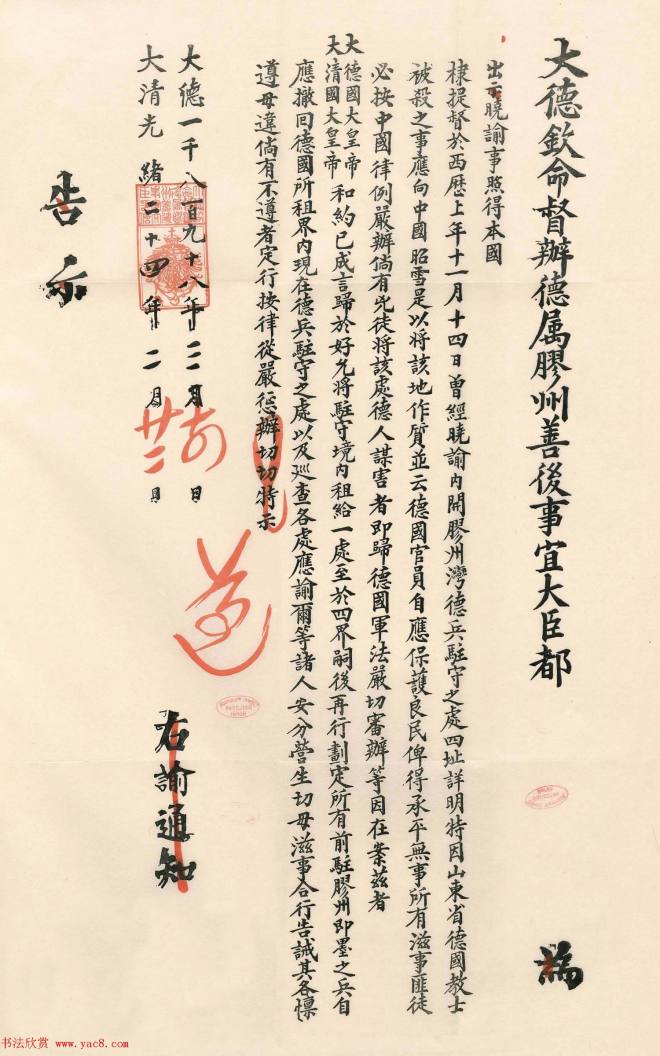 大德欽命督辦德属膠州善後事宜大臣都 為
出示曉諭事照得本國
棣提督於西歷上年十一月十四日曾經曉諭內開膠州灣德兵駐守之處四址詳明特因山東省德國教士
被殺之事應向中國昭雪是以將該地作質並云德國官員自應保護良民俾得承平無事所有滋事匪徒
必按中國律例嚴辦倘有兇徒將該處德人謀害者即歸德國軍法嚴切審辦等因在案茲者
大德國大皇帝
大清國大皇帝
和約已成言歸於好允將駐守境內租給一處至於四界嗣後再行劃定所有前駐膠州即墨之兵自
應撤回德國所租界內現在德兵駐守之處以及巡查各處應諭爾等諸人安分營生切毋滋事合行告誡其各懍
遵毋違倘有不遵者定行按律從嚴懲辦切切特示
遵
右諭通知
大德一千八百九十八年三月 日
大清光緒二十四年二月廿二日
告示
书法欣赏 www.yac8.com